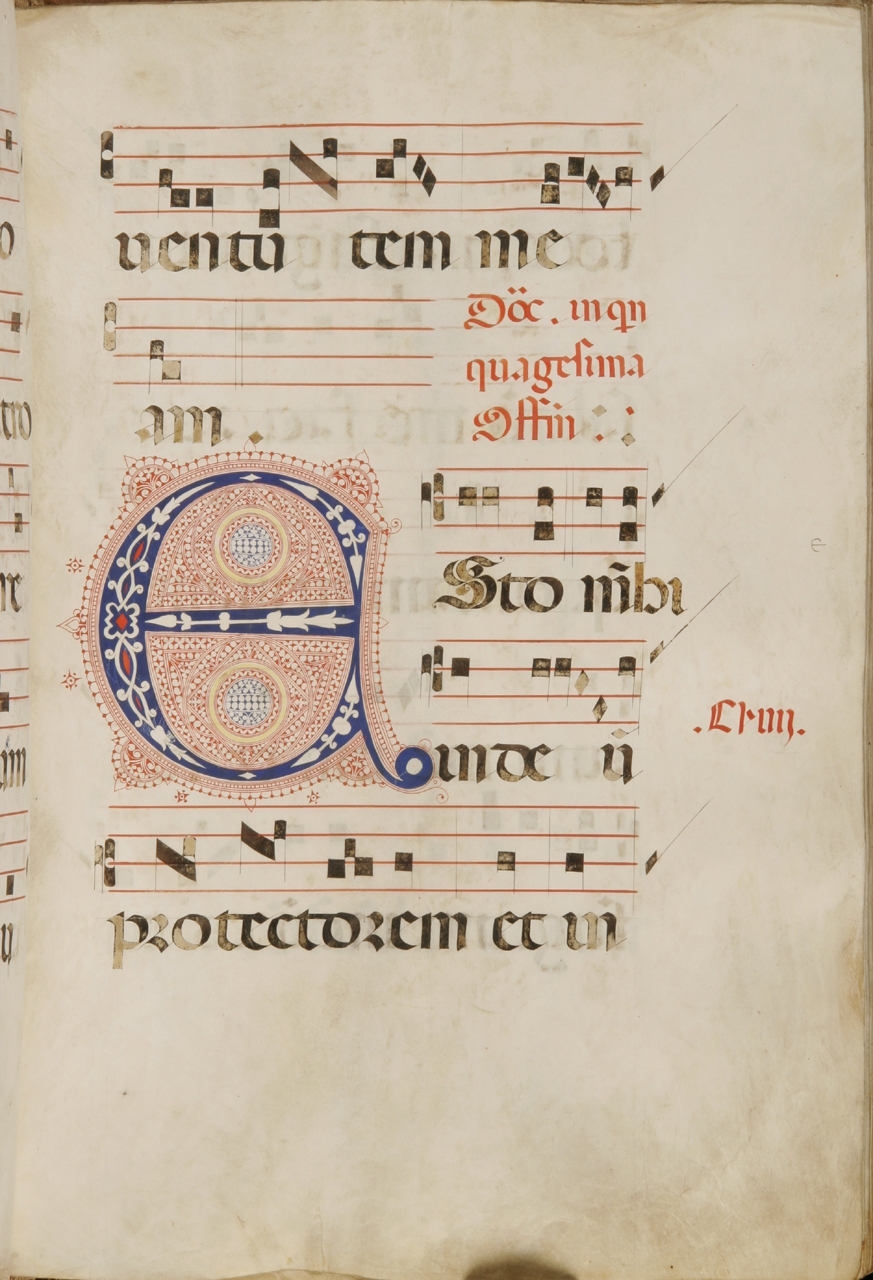 uentu tem me
am.
Dõc. in qn
quagesima
Offiii
ESto mihi
in de ū
protectorem et in